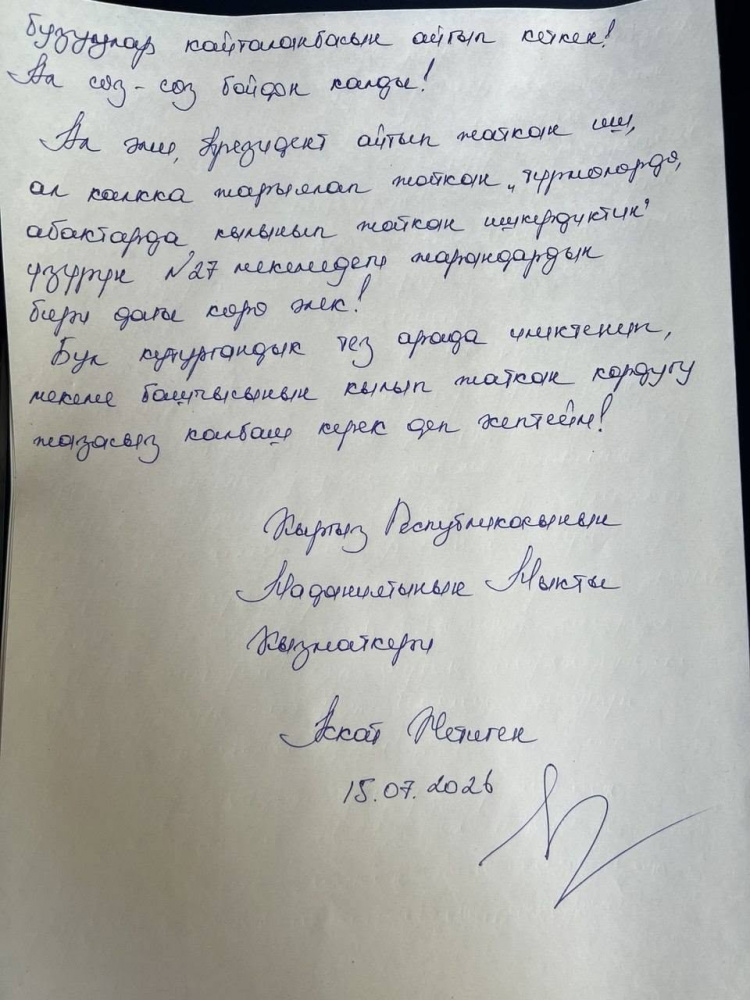 бузуулар кайталанбасын айтып кеткен!
Ал сөз-сөз бойдон калды!
Ал эми, Президент айтып жаткан иш,
ал калкка жарыялап жаткан „түрмөлөрдө,
абактарда кылынып жаткан ишкердиктин"
үзүрүн №27 мекемедеги жарандардын
бири дагы көрө элек!
Бул кутургандык тез арада иликтенип,
мекеме башчысынын кылып жаткан кордугу
жазасыз калбаш керек деп эсептейм!
Кыргыз Республикасынын
Маданиятынын Мыкты
Кызматкери
Аскат Жетиген
15.07.2026